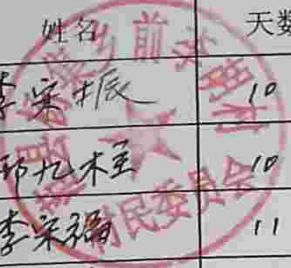 姓名 天数
李宋振 10
邱九桂 10
李宋福 11
村民委员会